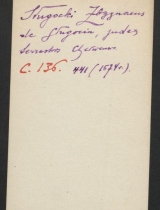 Stugocki Zygmunt
de Stugocin, judex
terrestris Chelmens
C. 136. 441 (1574 r.)